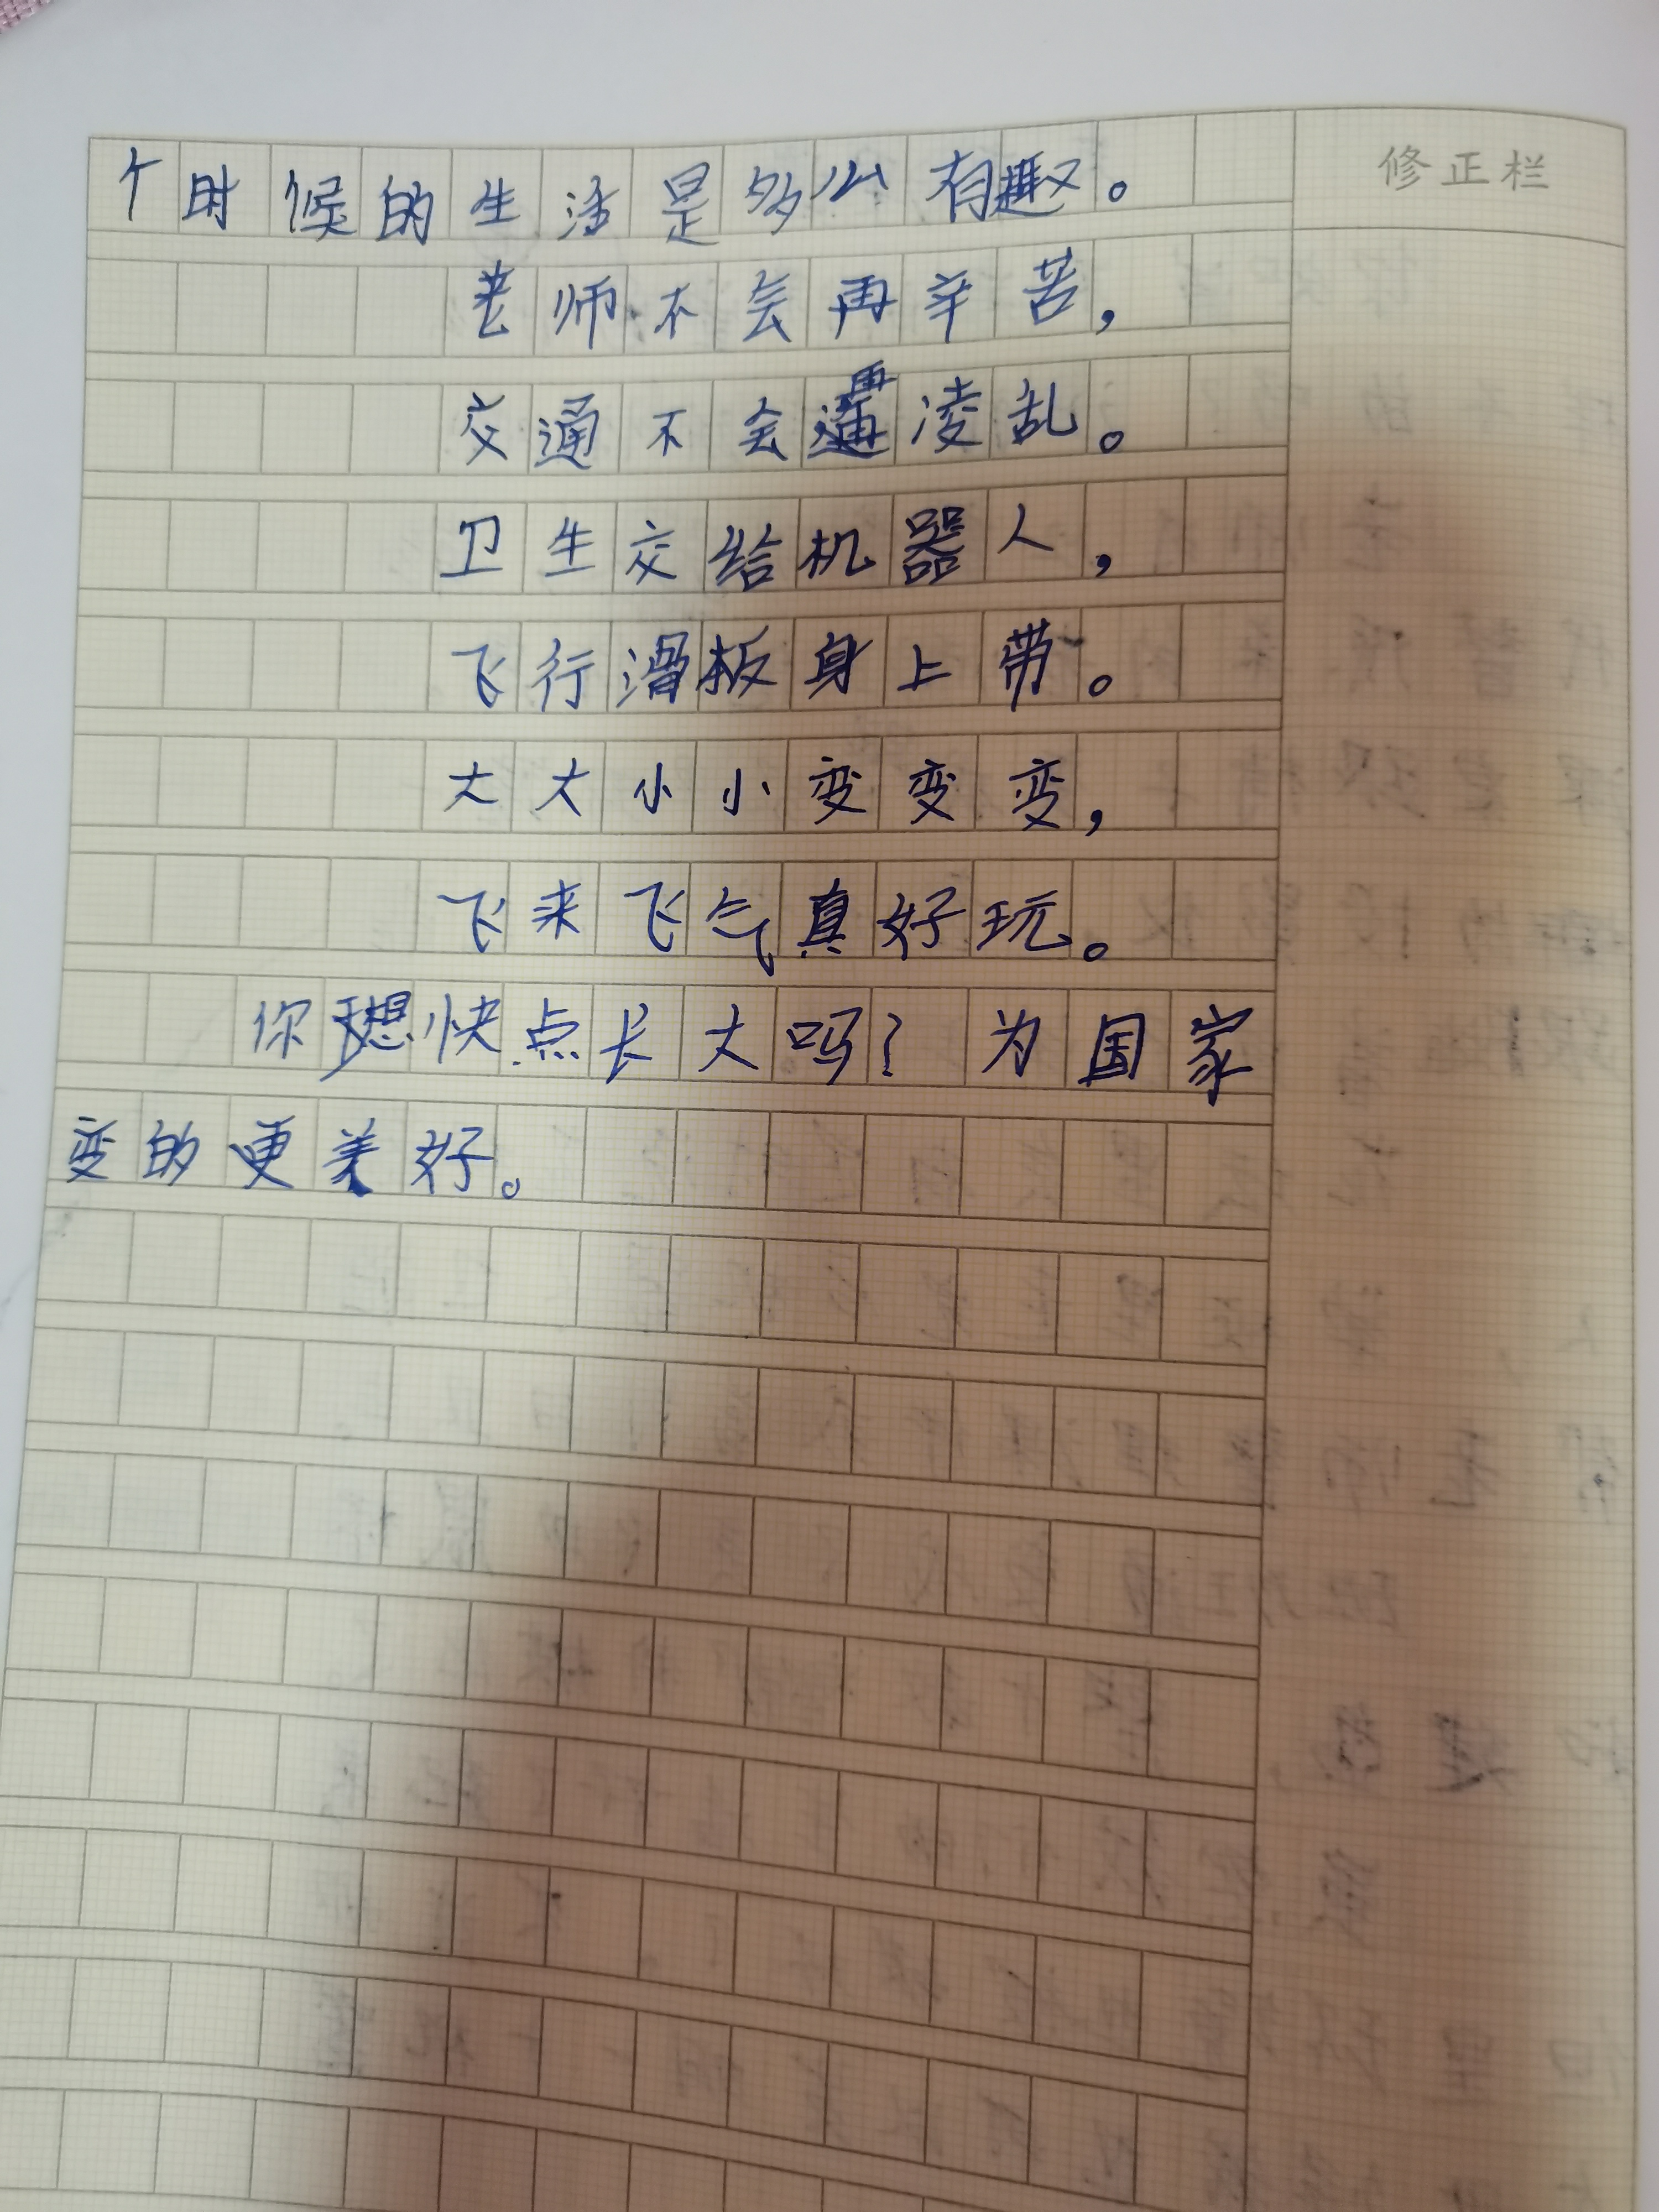 个时候的生活是多么有趣。
修正栏
老师不会再辛苦，
交通不会再凌乱。
卫生交给机器人，
飞行滑板身上带。
大大小小变变变，
飞来飞气真好玩。
你想快点长大吗？为国家
变的更美好。